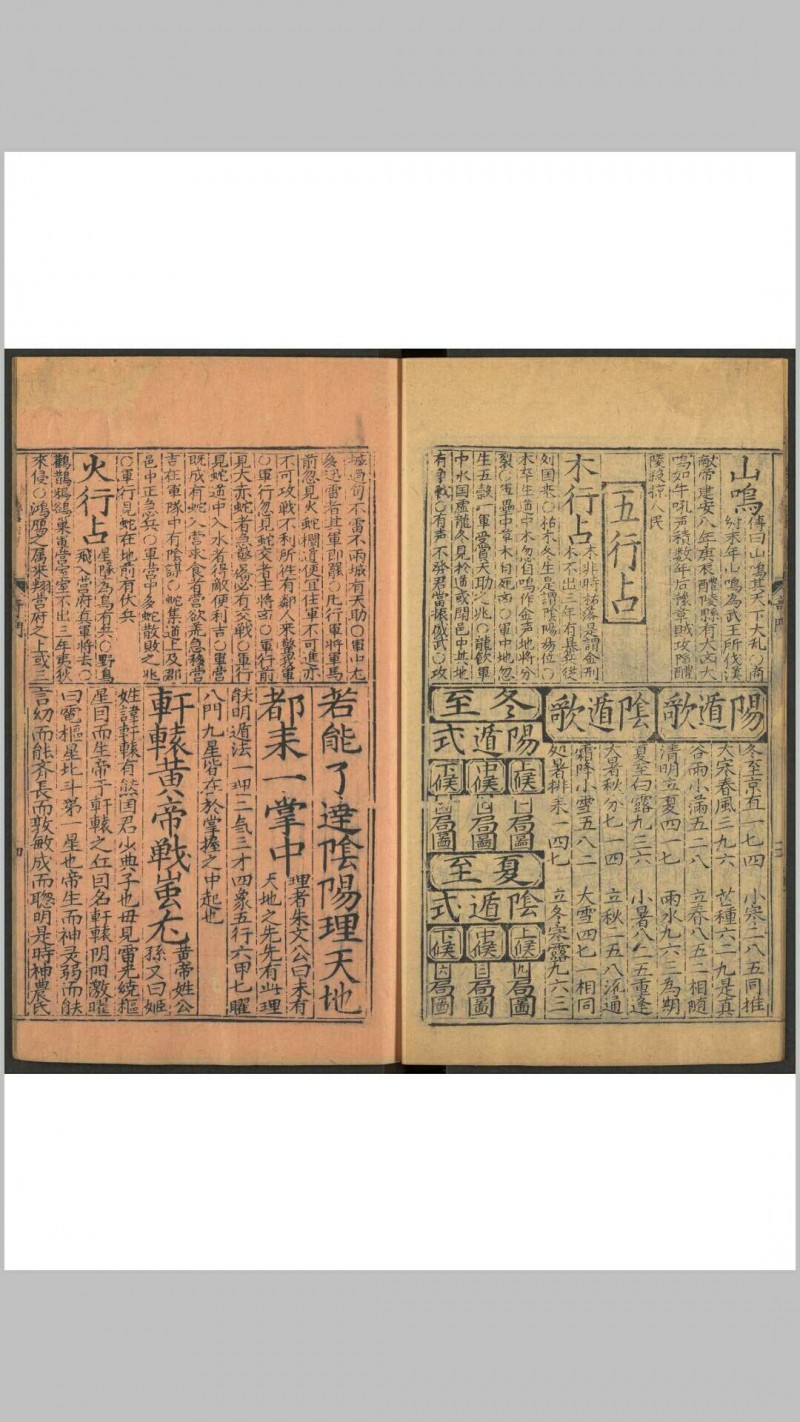 山鳴
傳曰山鳴其天下大乱○商
紂末年山鳴為武王所伐漢
献帝建安八年庚辰醴陵縣有大山大
鳴如牛吼声積数年后豫章賊攻陷醴
陵殺掠人民
五行占
木行占
木非時枯落是謂金刑
木不出三年有暴兵從
列国來○枯木冬生是謂陰陽易位○
木卒生道中木忽自鳴作金声地將分
裂○軍壘中草木自死㐫○軍中地忽
生五穀一軍受賞天助之兆○龍飲軍
中水国虛龍冬見於道或聞邑中其地
有争戰○有声不發君當振威武○攻
陽遁歌
冬至京直一七四
小寒二八五同推
大寒春風三九六
芒種六三九是真
谷雨小滿五二八
立春八五二相隨
清明立夏四一七
雨水九六三為期
陰遁歌
夏至白露九三六
小暑八二五重逢
大暑秋分七一四
立秋二五八流通
霜降小雪五八二
大雪四七一相同
処暑排来一四七
立冬寒露九六三
冬至
陽遁式
上候
中候
下候
局圖
局圖
局圖
夏至
陰遁式
上候
中候
下候
局圖
局圖
局圖
城過旬不雷不雨城有天助○軍中尤
多迅雷者其軍即罷○凡行軍將軍馬
前忽見火蛇攔道便宜住軍不可進亦
不可攻戰不利所徃有鄰人來擊我軍
○軍行忽見蛇交者主將㐫○軍行前
見大赤蛇者急驚備必有交戰○軍行
見蛇道中入水者得敵便利吉○軍營
既成有蛇入營求食者營欲荒急移營
吉在軍隊中有陰謀○蛇集道上及郡
邑中正急兵○軍營中多蛇散敗之兆
○軍行見蛇在地前有伏兵
火行占
星墜為鳥有兵○野鳥
飛入營府真軍將去○
鸛鵲鵶鷂巢軍營宮室不出三年夷狄
來侵○鴻鴈之属来翔營府之上或三
若能了達陰陽理天地
都来一掌中
理者朱文公曰未有
天地之先先有此理
能明遁法一理二氣三才四象五行六甲七曜
八門九星皆在於掌握之中起也
軒轅黃帝戰蚩尤
黃帝姓公
孫又曰姬
姓諱軒轅有熊囯君少典子也毋見電光繞樞
星因而生帝于軒轅之丘因名軒轅阴阳激曜
曰電樞星北斗第一星也帝生而神灵弱而能
言幼而能齐長而敦敏成而聰明是時神農氏